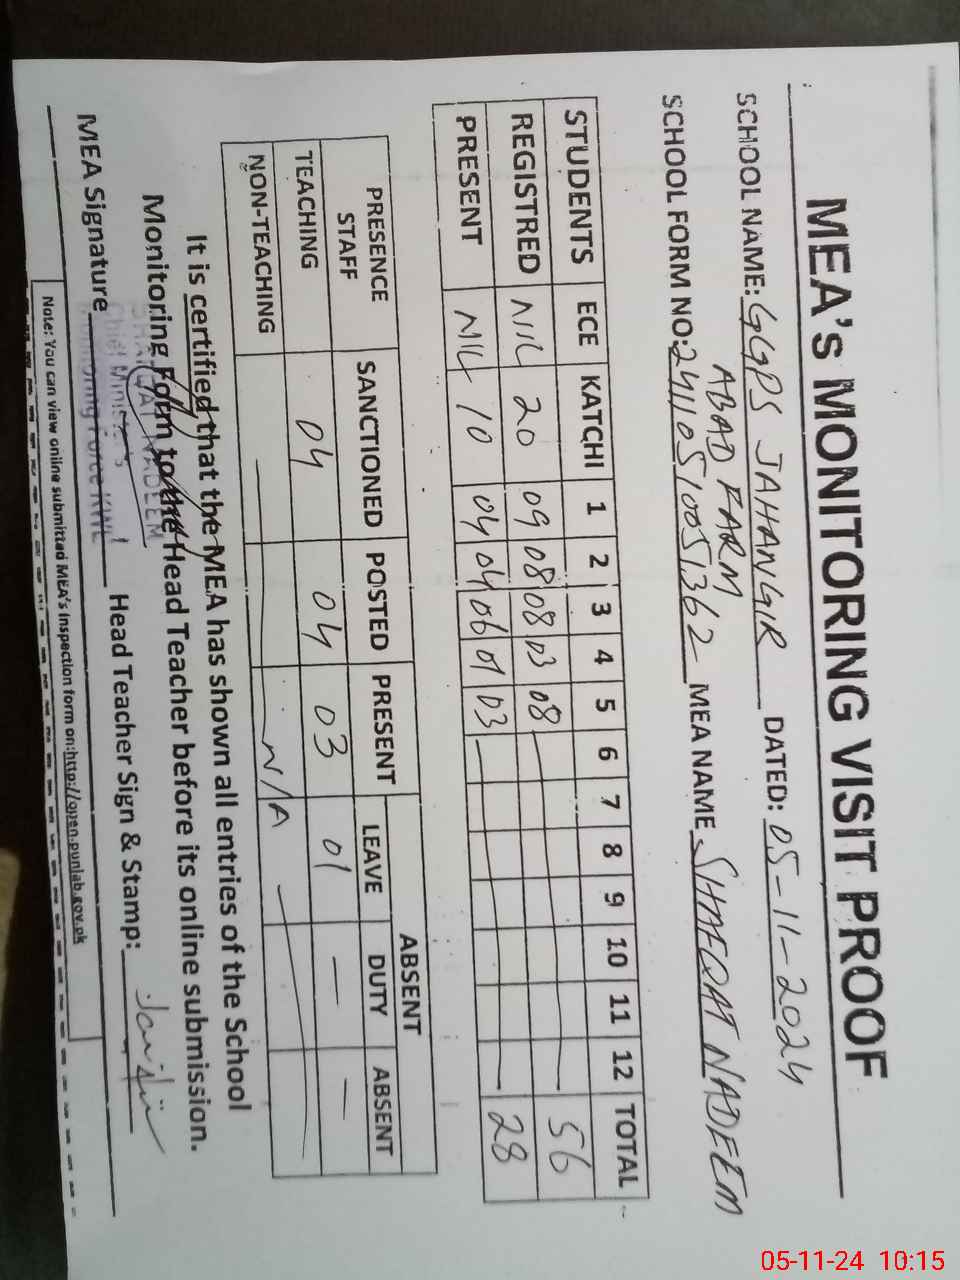 MEA's MONITORING VISIT PROOF
SCHOOL NAME: GGPS JAHANGIR DATED: 05-11-2024
ABAD FARM
SCHOOL FORM NO: 2411051005362 MEA NAME SHAFQAT NADEEM
STUDENTS ECE KATCHI 1 2 3 4 5 6 7 8 9 10 11 12 TOTAL
REGISTRED NIL 20 09 08 08 03 08 56
PRESENT NIL 10 04 04 06 01 03 28
PRESENCE STAFF SANCTIONED POSTED PRESENT ABSENT
LEAVE DUTY ABSENT
TEACHING 04 04 03 01 — —
NON-TEACHING — — N/A
It is certified that the MEA has shown all entries of the School
Monitoring Form to the Head Teacher before its online submission.
SHAFQAT NADEEM
Chief Minister's
Monitoring Force KWL
MEA Signature Head Teacher Sign & Stamp:
Note: You can view online submitted MEA's inspection form on:http://open.punjab.gov.pk
05-11-24 10:15